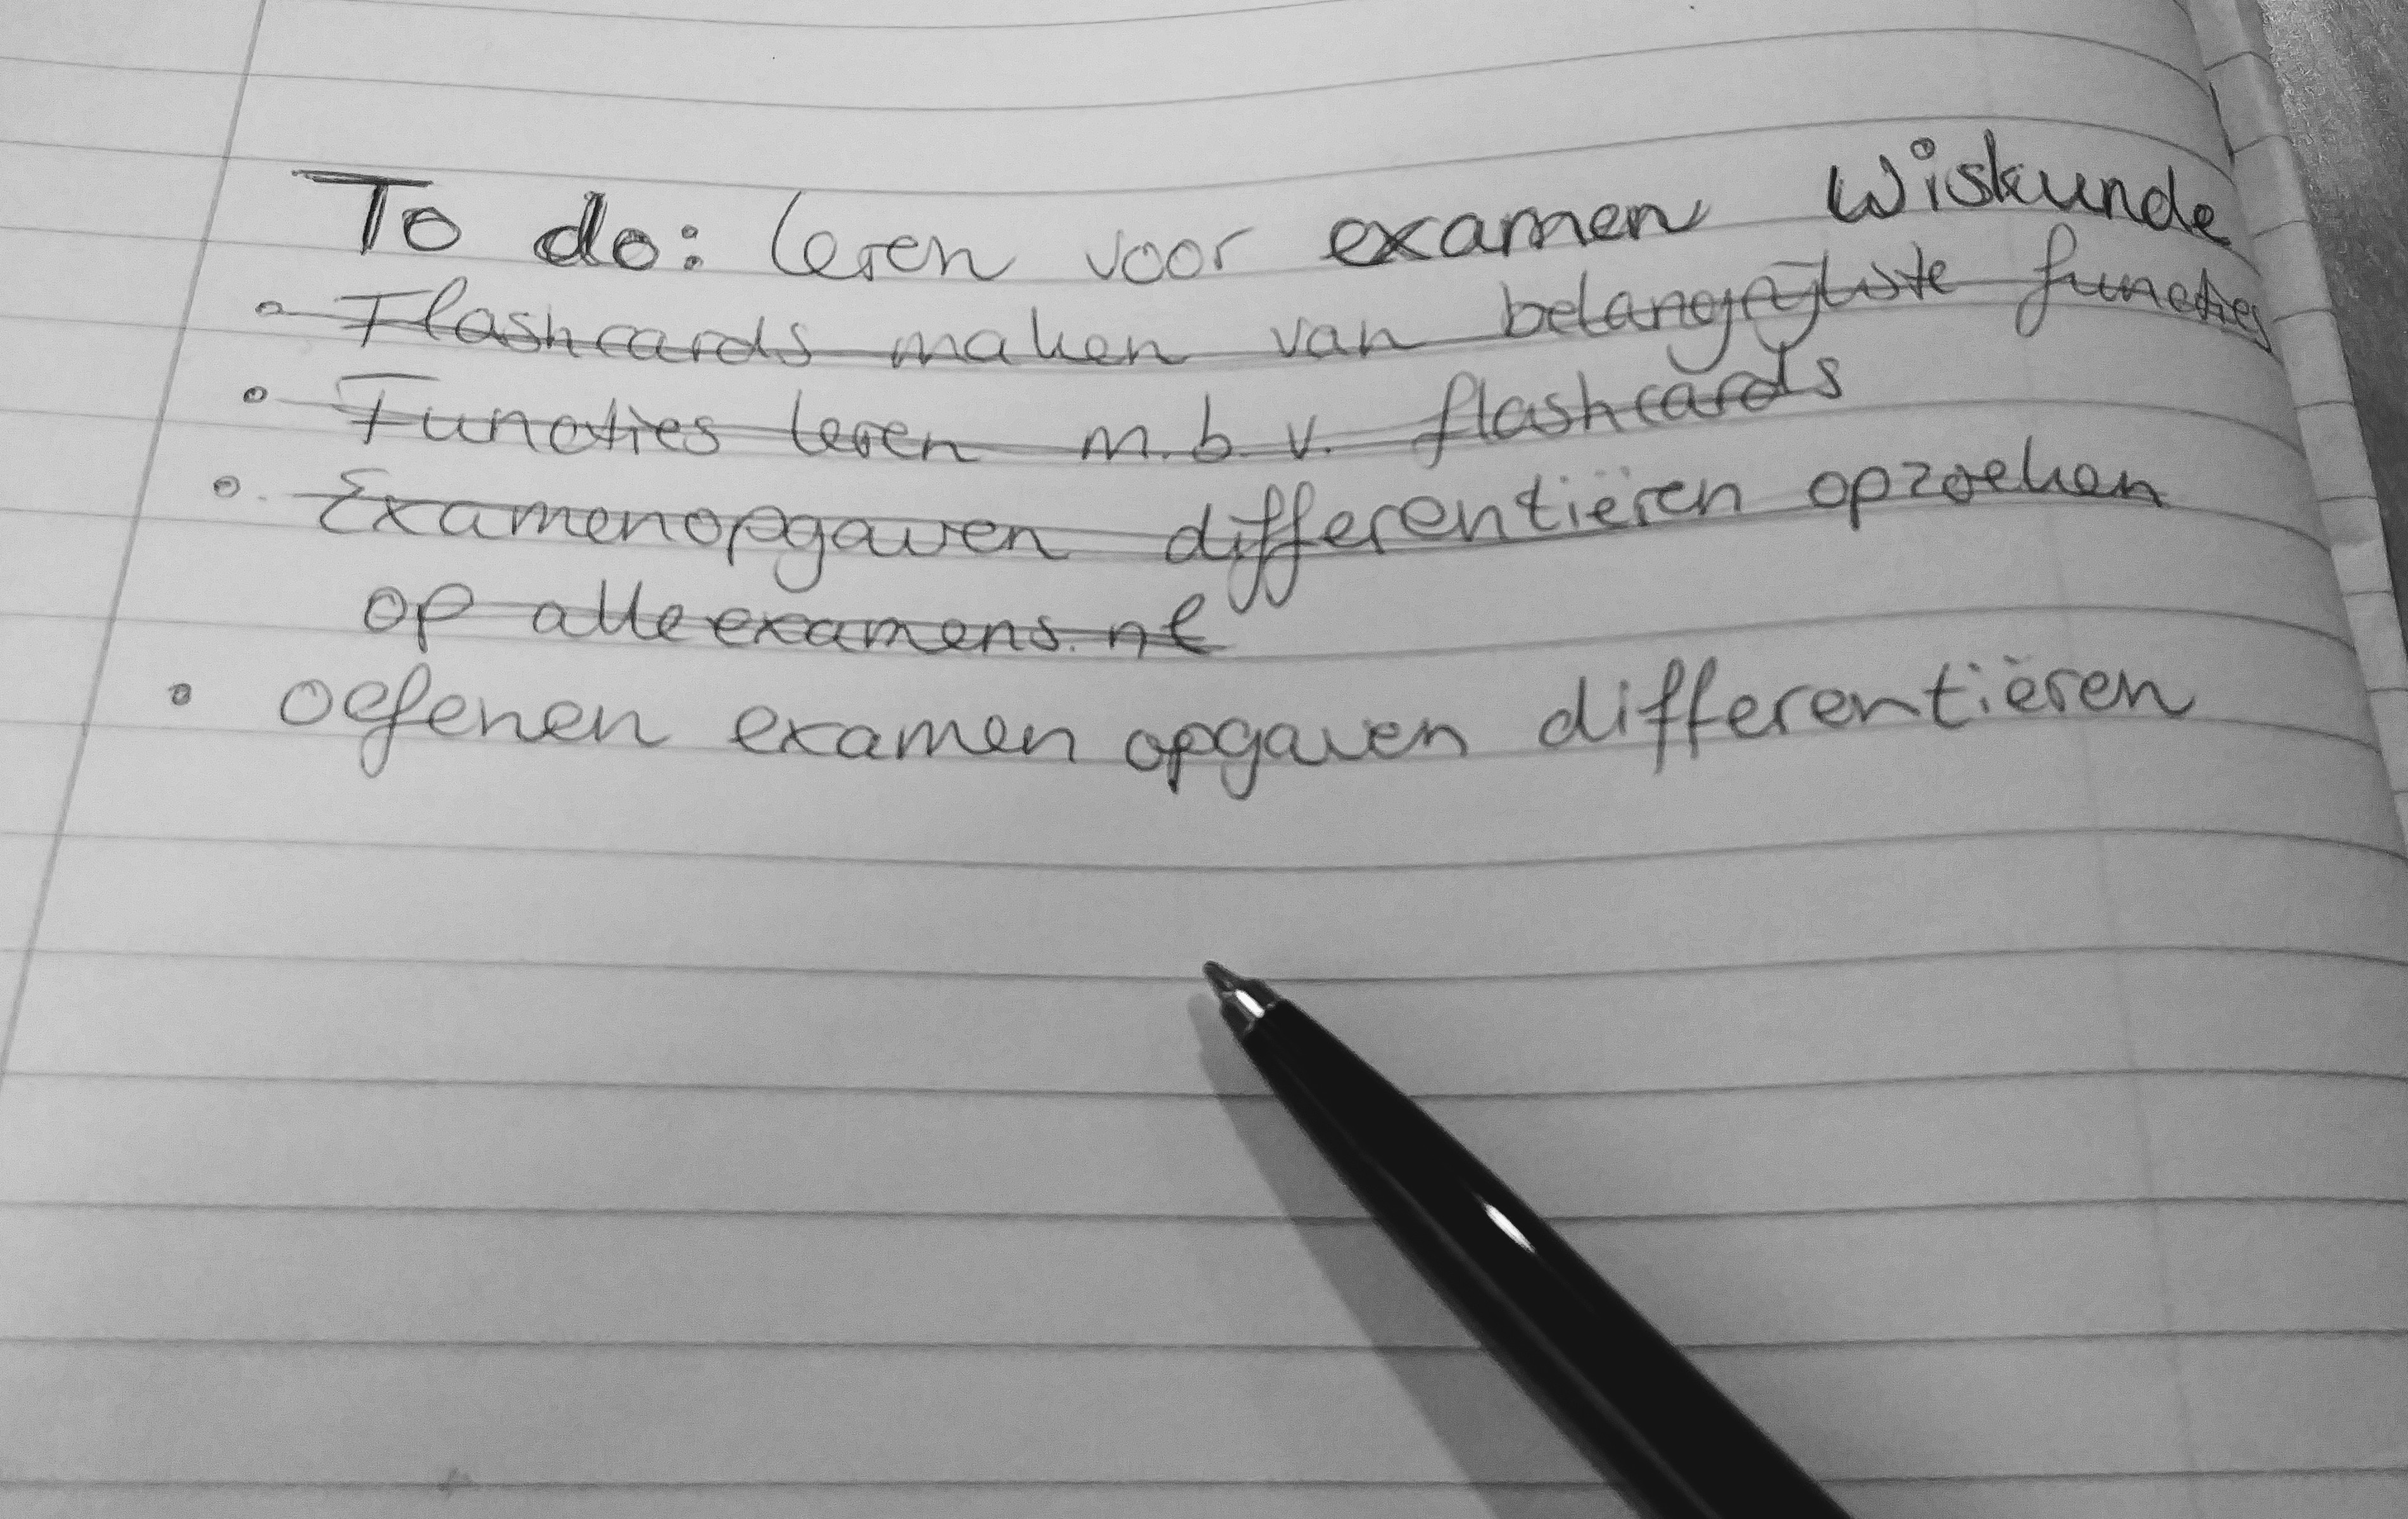 To do: leren voor examen Wiskunde
• Flashcards maken van belangrijkste functies
• Functies leren m.b.v. flashcards
• Examenopgaven differentiëren opzoeken
op alleexamens.nl
• oefenen examen opgaven differentiëren